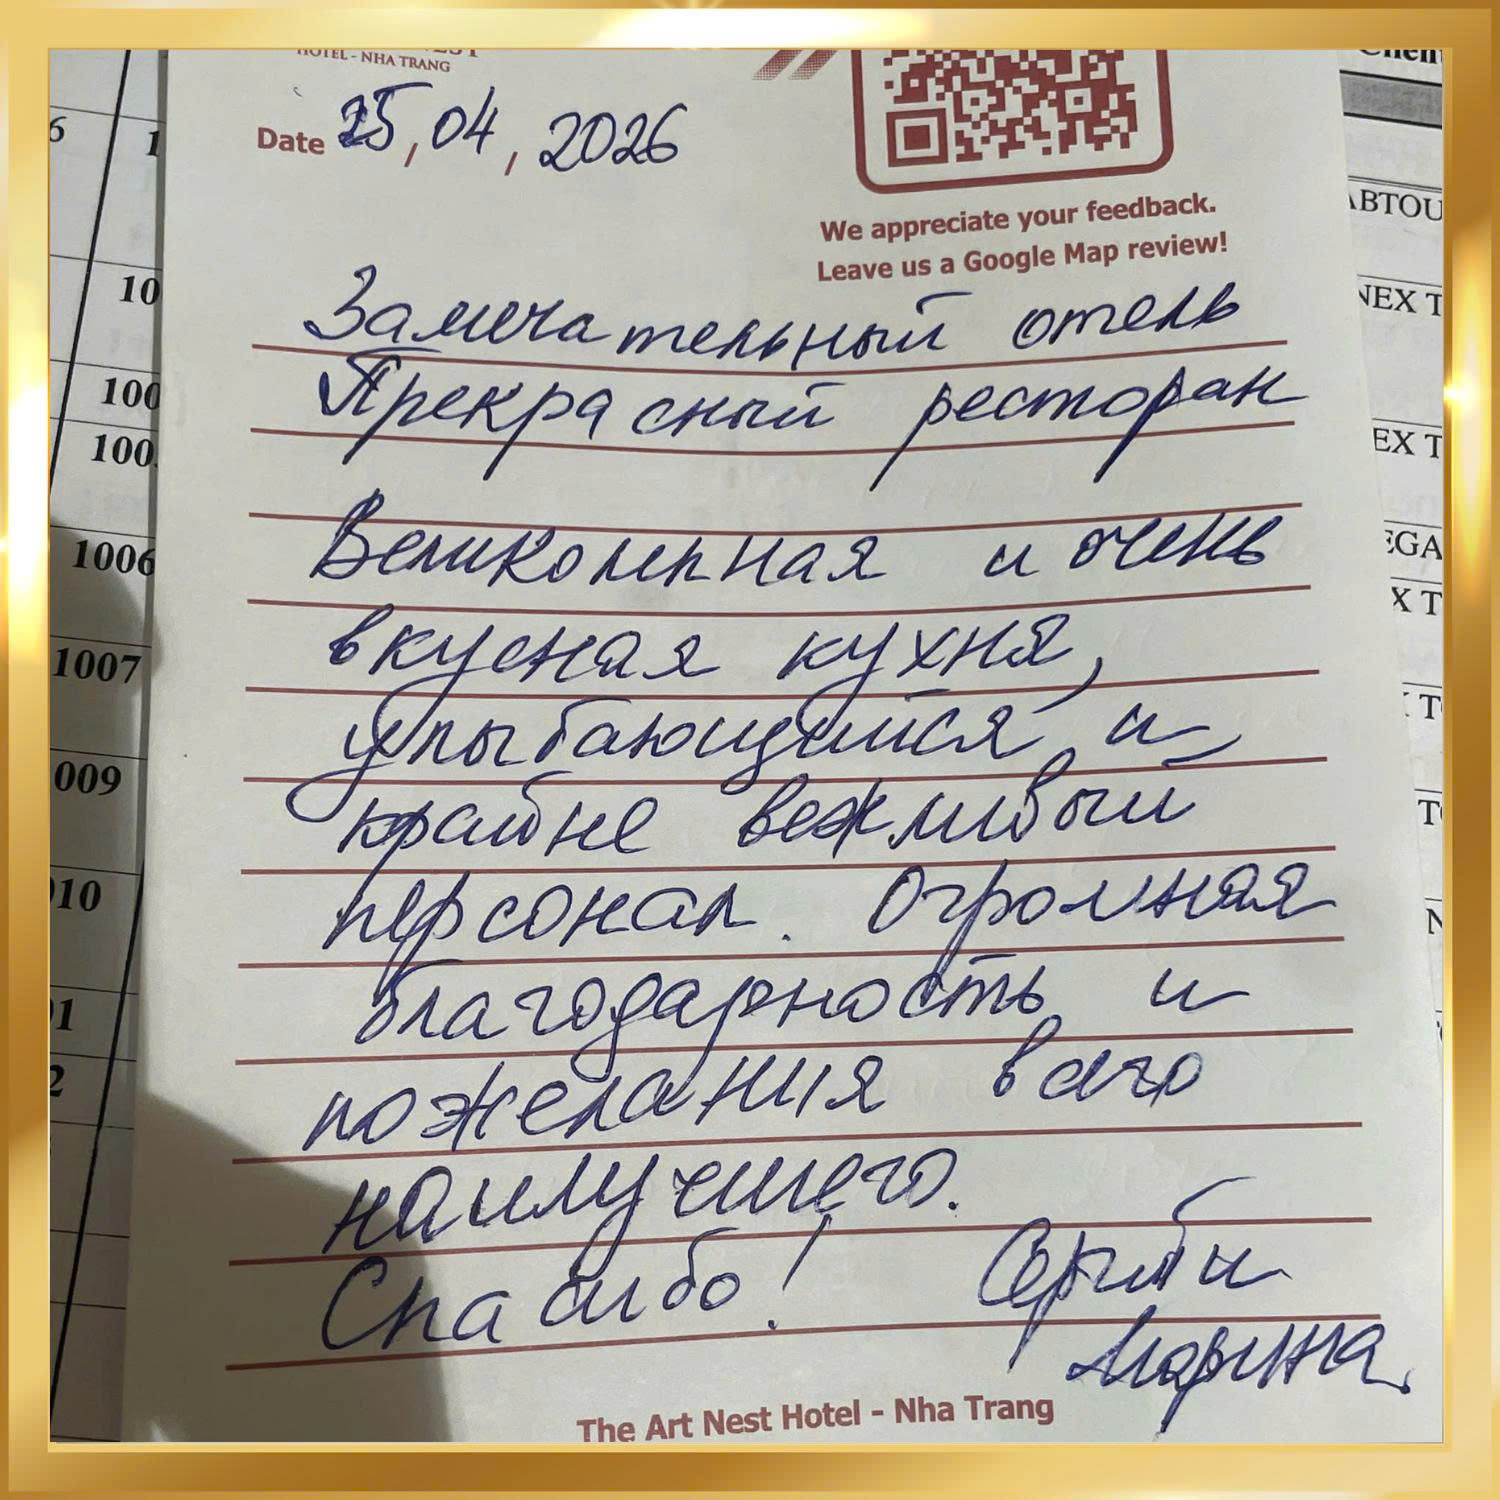 HOTEL - NHA TRANG
Date 25, 04, 2026
We appreciate your feedback.
Leave us a Google Map review!
Замечательный отель
Прекрасный ресторан
Великолепная и очень
вкусная кухня,
улыбающийся и
крайне вежливый
персонал. Огромная
благодарность и
пожелания всего
наилучшего.
Спасибо! Сергей и
Марина.
The Art Nest Hotel - Nha Trang
10
100
100
1006
1007
009
010
ABTOU
NEX T
EX T
EGA
X T